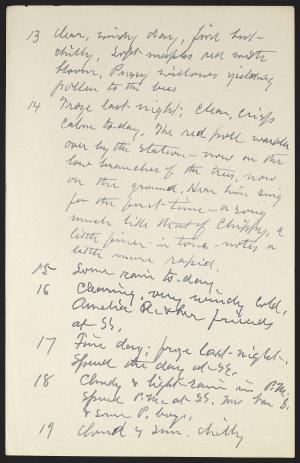 13 Clear, windy day, fine but
chilly. Soft maples red with
bloom, Pussy willows yielding
pollen to the bees
14 Froze last night; clear, crisp
calm to-day. The red poll warbler
over by the station – now on the
low branches of the trees, now
on the ground. Hear him sing
for the first time – a song
much like that of Chippy, a
little finer in tone – notes a
little more rapid.
15 Some rain to-day.
16 Clearing, very windy cold,
Amelia R. & her friends
at SS.
17 Fine day; froze last-night.
Spend the day at SS.
18 Cloudy & light rain in P.M.
Spend P.M. at SS. Mr Van B.
& some P. boys.
19 Cloud & sun. chilly